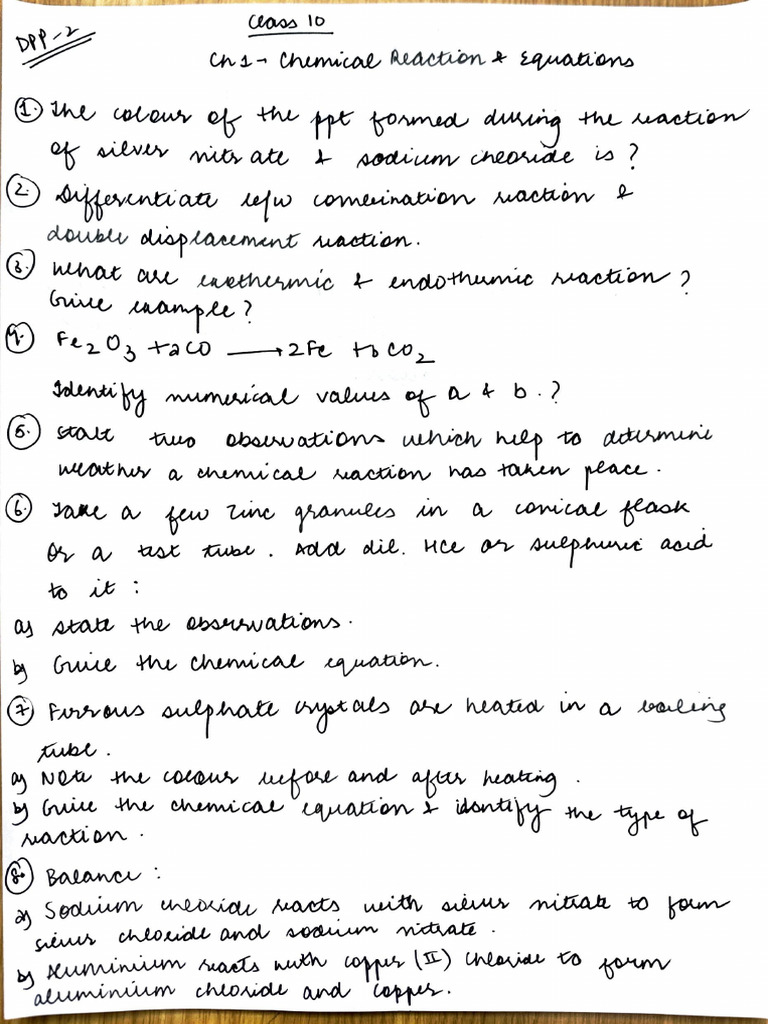 DPP-2
Class 10
Ch 1 - Chemical Reaction & Equations
1. The colour of the ppt formed during the reaction
of silver nitrate & sodium chloride is ?
2. Differentiate b/w combination reaction &
double displacement reaction.
3. What are exothermic & endothermic reaction ?
Give example ?
4. Fe₂O₃ + aCO ⟶ 2Fe + bCO₂
Identify numerical values of a & b. ?
5. State two observations which help to determine
weather a chemical reaction has taken place.
6. Take a few zinc granules in a conical flask
or a test tube. Add dil. HCl or sulphuric acid
to it :
a) State the observations.
b) Give the chemical equation.
7. Ferrous sulphate crystals are heated in a boiling
tube.
a) Note the colour before and after heating.
b) Give the chemical equation & identify the type of
reaction.
8. Balance :
a) Sodium chloride reacts with silver nitrate to form
silver chloride and sodium nitrate.
b) Aluminium reacts with copper (II) chloride to form
aluminium chloride and copper.